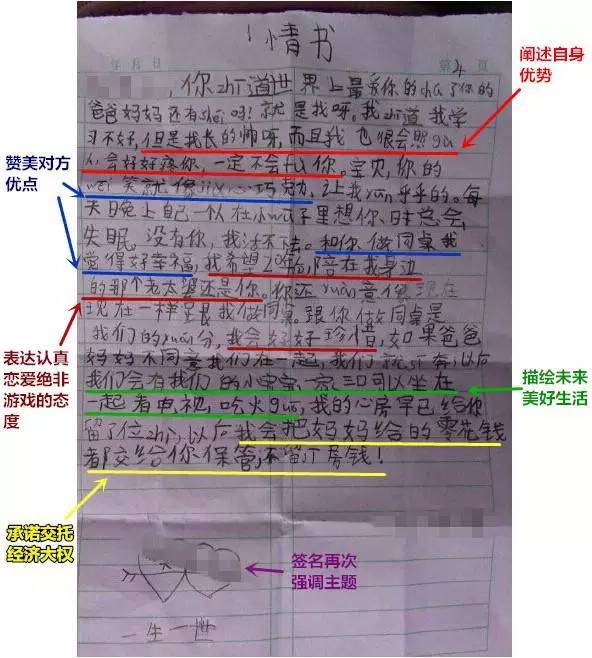 情书
年 月 日
第 4 页
,你zhi道世界上最关你的cha了你的
爸爸妈妈还有shei吗!就是我呀。我zhi道我学
习不好,但是我长的帅呀,而且我也很会照gu
人会好好疼你,一定不会fu你。宝贝,你的
wei笑就像 巧克力,让我yun乎乎的。每
天晚上自己一个人在小wu子里想你,日寸总会
失眠。没有你,我活不 去。和你做同桌我
觉得好幸福,我希望 陪在我身边
的那个老太婆还是你,你还yuan意像现在
现在一样 跟我做同桌。跟你做同桌是
我们的yuan分,我会好好珍惜,如果爸爸
妈妈不同意我们在一起,我们就 奔,以后
我们会有我们的小宝宝一家三口可以坐在
一起看电视,吃火guo,我的心房早已给你
留了位zhi,以后我会把妈妈给的零花钱
都交给你保管,不留 房钱!
一生一世
阐述自身
优势
赞美对方
优点
表达认真
恋爱绝非
游戏的态
度
描绘未来
美好生活
承诺交托
经济大权
签名再次
强调主题